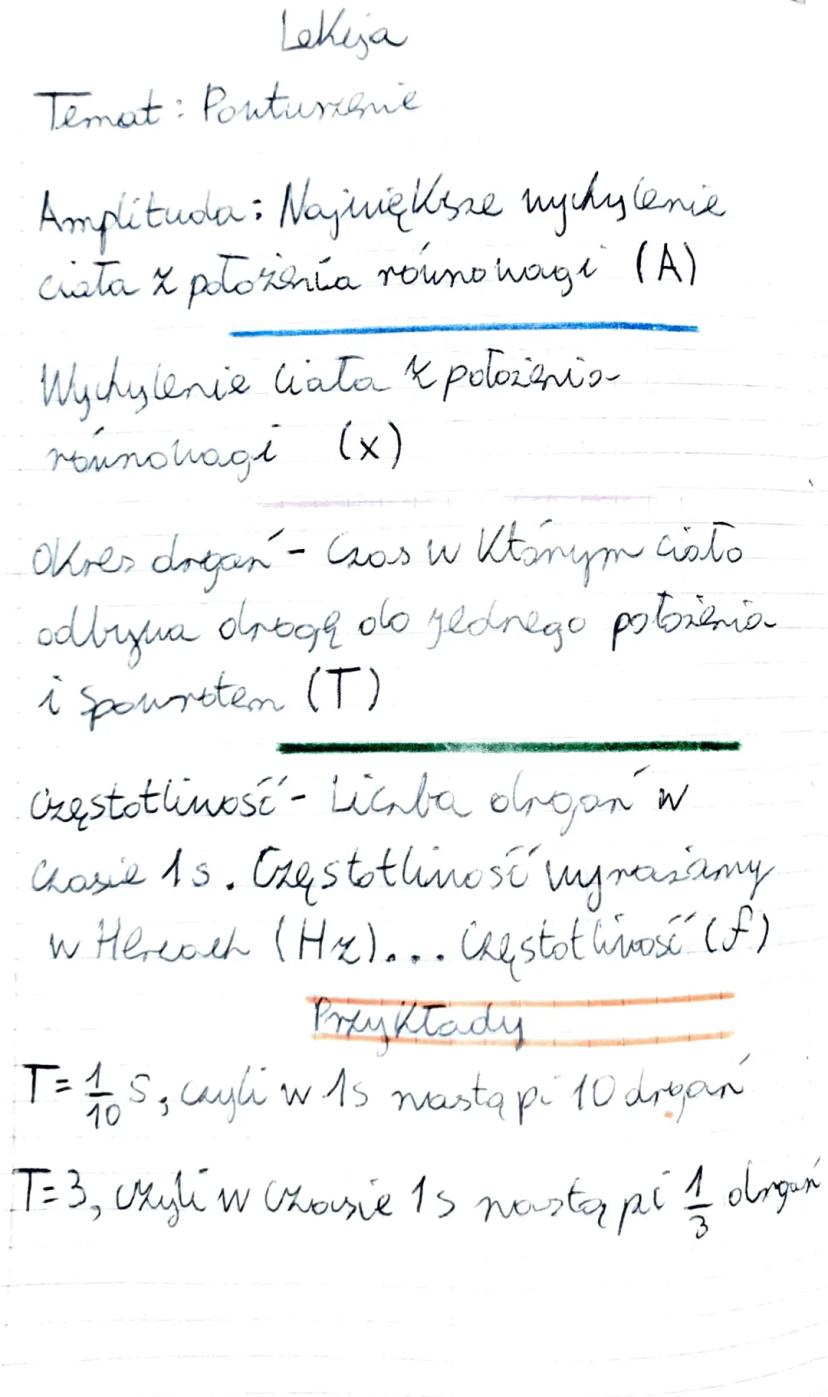 Lekcja
Temat: Powturzenie
Amplituda: Największe wychylenie
ciała z położenia równowagi (A)
Wychylenie ciała z położenia
równowagi (x)
Okres drgań - Czas w Którym ciało
odbywa drogę do jednego położenia
i spowrotem (T)
Częstotliwość - Liczba drgań w
czasie 1s. Częstotliwość wyrażamy
w Hercach (Hz)... Częstotliwość (f)
Przykłady
T= 1/10 s, czyli w 1s nastąpi 10 drgań
T=3, czyli w czasie 1s nastąpi 1/3 drgań